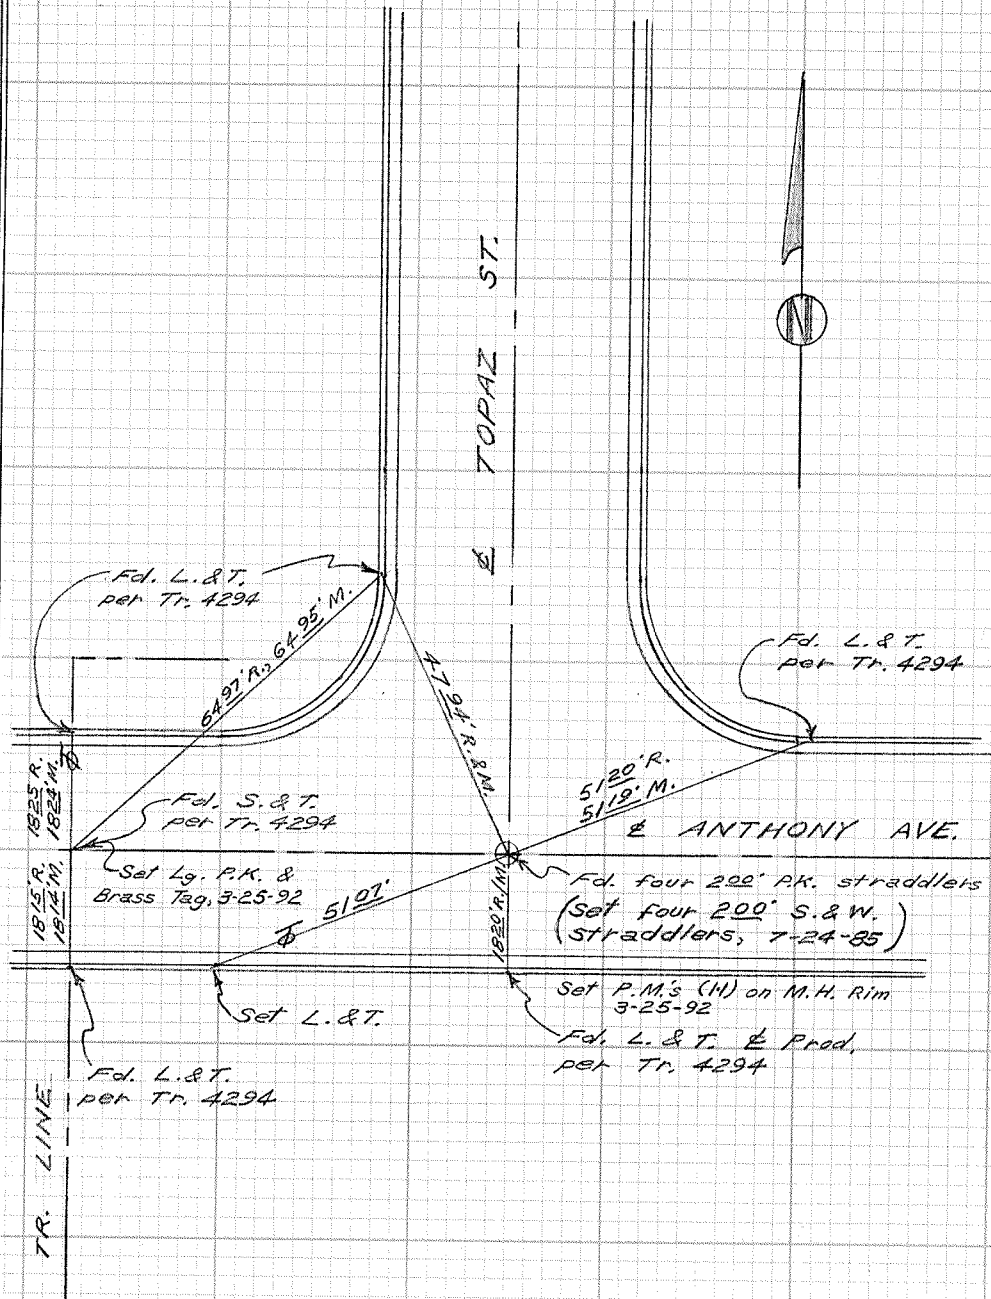 ℄ TOPAZ ST.
N
Fd. L. & T.
per Tr. 4294
64.97' R., 64.95' M.
47.94' R. & M.
Fd. L. & T.
per Tr. 4294
18.25 R.
18.24' M.
Fd. S. & T.
per Tr. 4294
51.20' R.
51.19' M.
℄ ANTHONY AVE.
Set Lg. P.K. &
Brass Tag, 3-25-92
18.15' R.
18.14' M.
51.07'
18.20' R./M.
Fd. four 2.00' P.K. straddlers
(Set four 2.00' S. & W.
straddlers, 7-24-85)
Set P.M.'s (H) on M.H. Rim
3-25-92
Set L. & T.
Fd. L. & T. ℄ Prod.
per Tr. 4294
Fd. L. & T.
per Tr. 4294
TR. LINE